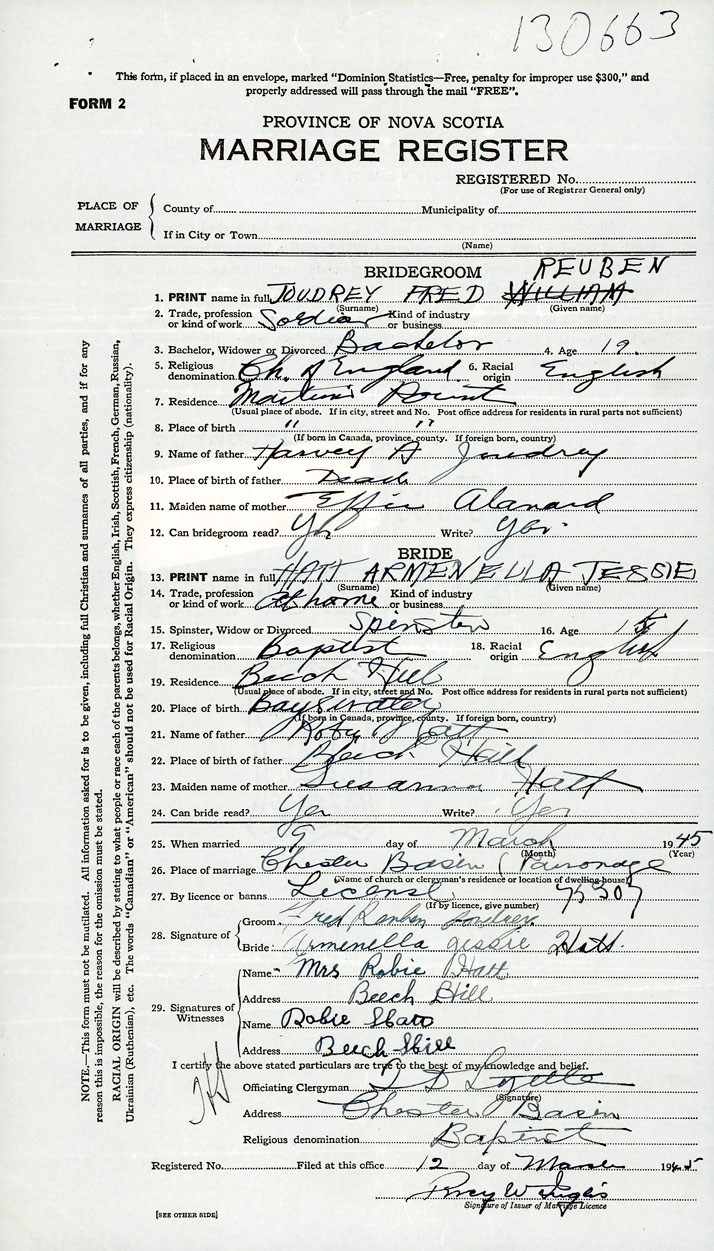 130663
This form, if placed in an envelope, marked "Dominion Statistics—Free, penalty for improper use $300," and
properly addressed will pass through the mail "FREE".
FORM 2
PROVINCE OF NOVA SCOTIA
MARRIAGE REGISTER
REGISTERED No.
(For use of Registrar General only)
PLACE OF MARRIAGE
County of Municipality of
If in City or Town
(Name)
BRIDEGROOM
REUBEN
1. PRINT name in full JOUDREY FRED WILLIAM
(Surname) (Given name)
2. Trade, profession or kind of work Soldier Kind of industry or business
3. Bachelor, Widower or Divorced Bachelor 4. Age 19
5. Religious denomination Ch. of England 6. Racial origin English
7. Residence Point
(Usual place of abode. If in city, street and No. Post office address for residents in rural parts not sufficient)
8. Place of birth " "
(If born in Canada, province, county. If foreign born, country)
9. Name of father Harvey A Joudrey
10. Place of birth of father Dead
11. Maiden name of mother Effie
12. Can bridegroom read? Yes Write? Yes
BRIDE
13. PRINT name in full HATT ARMENELLA JESSIE
(Surname) (Given name)
14. Trade, profession or kind of work at home Kind of industry or business
15. Spinster, Widow or Divorced Spinster 16. Age
17. Religious denomination Baptist 18. Racial origin English
19. Residence Beech Hill
(Usual place of abode. If in city, street and No. Post office address for residents in rural parts not sufficient)
20. Place of birth Bayswater
(If born in Canada, province, county. If foreign born, country)
21. Name of father Robie Hatt
22. Place of birth of father Beech Hill
23. Maiden name of mother Susanna Hatt
24. Can bride read? Yes Write? Yes
25. When married 9 day of March 1945
(Month) (Year)
26. Place of marriage Chester Basin (Parsonage
(Name of church or clergyman's residence or location of dwelling house)
27. By licence or banns License 75507
(If by licence, give number)
28. Signature of Groom Fred Reuben Joudrey
Bride: Armenella Jessie Hatt.
29. Signatures of Witnesses
Name Mrs Robie Hatt
Address Beech Hill
Name Robie Hatt
Address Beech Hill
I certify the above stated particulars are true to the best of my knowledge and belief.
Officiating Clergyman
(Signature)
Address Chester Basin
Religious denomination Baptist
Registered No. Filed at this office 12 day of March 1945
Percy W
Signature of Issuer of Marriage Licence
[SEE OTHER SIDE]
NOTE.—This form must not be mutilated. All information asked for is to be given, including full Christian and surnames of all parties, and if for any
reason this is impossible, the reason for the omission must be stated.
RACIAL ORIGIN will be described by stating to what people or race each of the parents belongs, whether English, Irish, Scottish, French, German, Russian,
Ukrainian (Ruthenian), etc. The words "Canadian" or "American" should not be used for Racial Origin. They express citizenship (nationality).